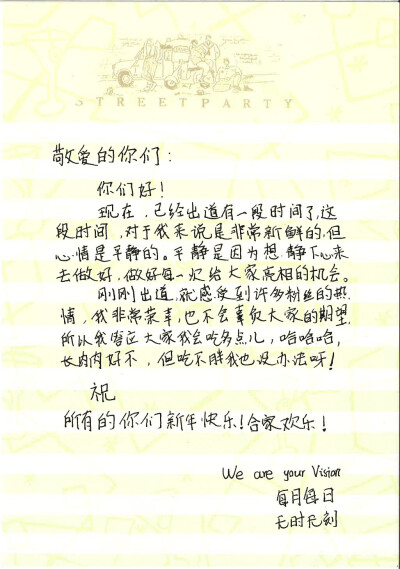 STREETPARTY
敬爱的你们：
你们好！
现在，已经出道有一段时间了，这
段时间，对于我来说是非常新鲜的，但
心情是平静的。平静是因为想静下心来
去做好，做好每一次给大家亮相的机会。
刚刚出道，就感受到许多粉丝的热
情，我非常荣幸，也不会辜负大家的期望
所以我答应大家我会吃多点儿，哈哈哈，
长肉肉好不，但吃不胖我也没办法呀！
祝
所有的你们新年快乐！合家欢乐！
We are your Vision
每月每日
无时无刻